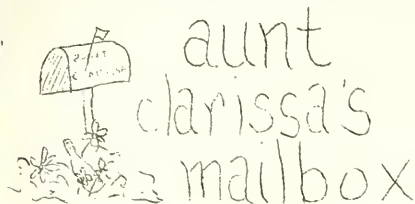 aunt
clarissa's
mailbox